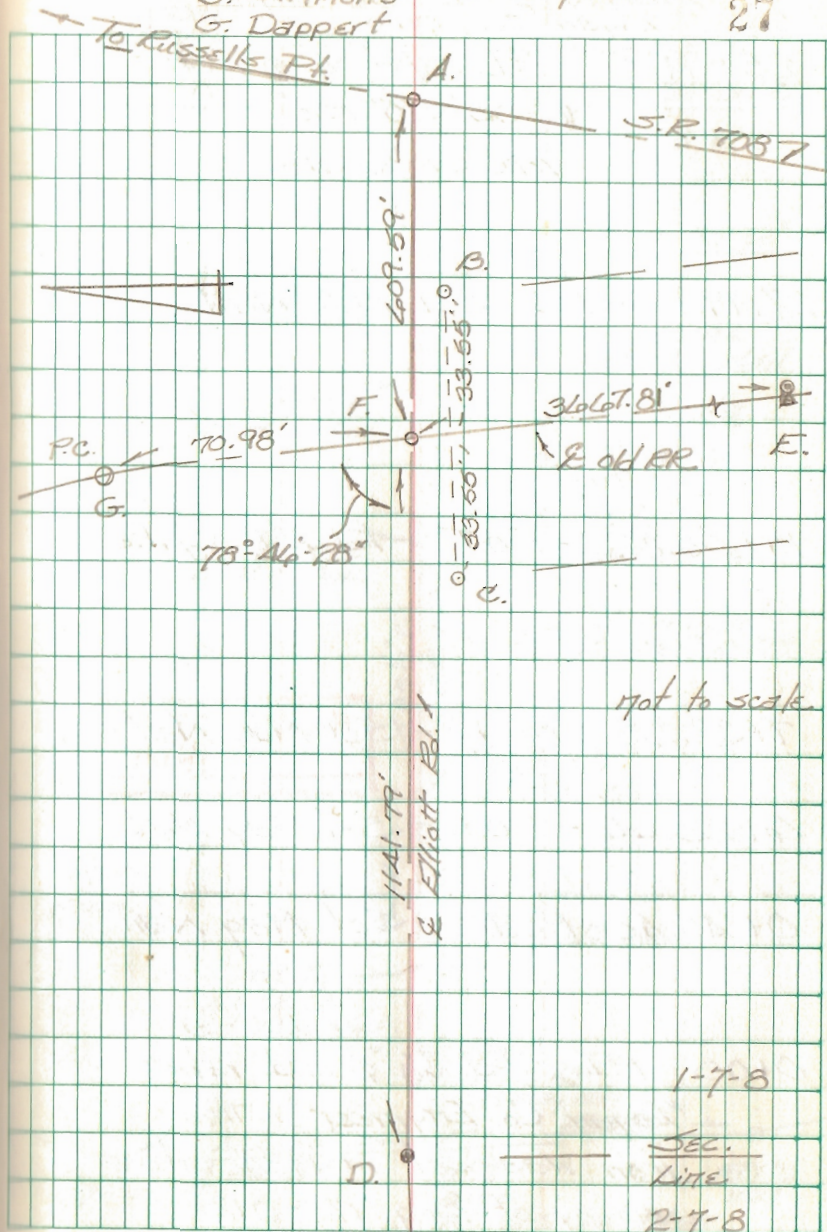 G. Dappert
27
To Russells Pt.
A.
S.R. 708
409.59'
B.
33.55'
F.
3667.81'
P.C.
70.98'
℄ old RR
E.
G.
33.55'
78°-46'-28"
C.
not to scale
1141.79'
℄ Elliott Rd.
1-7-8
Sec.
Line
D.
2-7-8